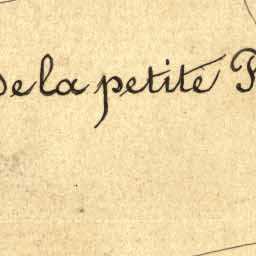 de la petite